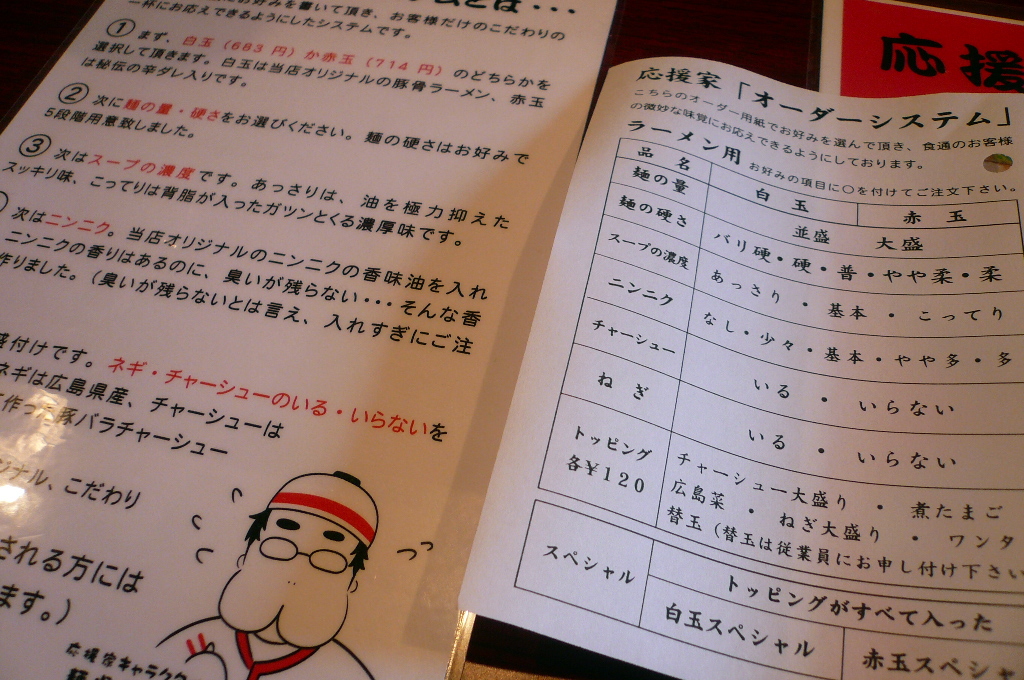 一杯にお応えできるようにしたシステムです。
① まず、白玉（683 円）か赤玉（714 円）のどちらかを
選択して頂きます。白玉は当店オリジナルの豚骨ラーメン、赤玉
は秘伝の辛ダレ入りです。
② 次に麺の量・硬さをお選びください。麺の硬さはお好みで
5段階用意致しました。
③ 次はスープの濃度です。あっさりは、油を極力抑えた
スッキリ味、こってりは背脂が入ったガツンとくる濃厚味です。
次はニンニク。当店オリジナルのニンニクの香味油を入れ
ニンニクの香りはあるのに、臭いが残らない・・・そんな香
作りました。（臭いが残らないとは言え、入れすぎにご注
盛付けです。ネギ・チャーシューのいる・いらないを
ネギは広島県産、チャーシューは
作った豚バラチャーシュー
ジナル、こだわり
される方には
ます。）
応援家キャラクタ
応援
応援家「オーダーシステム」
こちらのオーダー用紙でお好みを選んで頂き、食通のお客様
の微妙な味覚にお応えできるようにしております。
ラーメン用 お好みの項目に○を付けてご注文下さい。
品 名 白 玉 赤 玉
麺の量 並盛 大盛
麺の硬さ バリ硬・硬・普・やや柔・柔
スープの濃度 あっさり ・ 基本 ・ こってり
ニンニク なし・少々・基本・やや多・多
チャーシュー いる ・ いらない
ねぎ いる ・ いらない
トッピング
各￥120
チャーシュー大盛り ・ 煮たまご
広島菜 ・ ねぎ大盛り ・ ワンタ
替玉（替玉は従業員にお申し付け下さい
スペシャル トッピングがすべて入った
白玉スペシャル 赤玉スペシャ